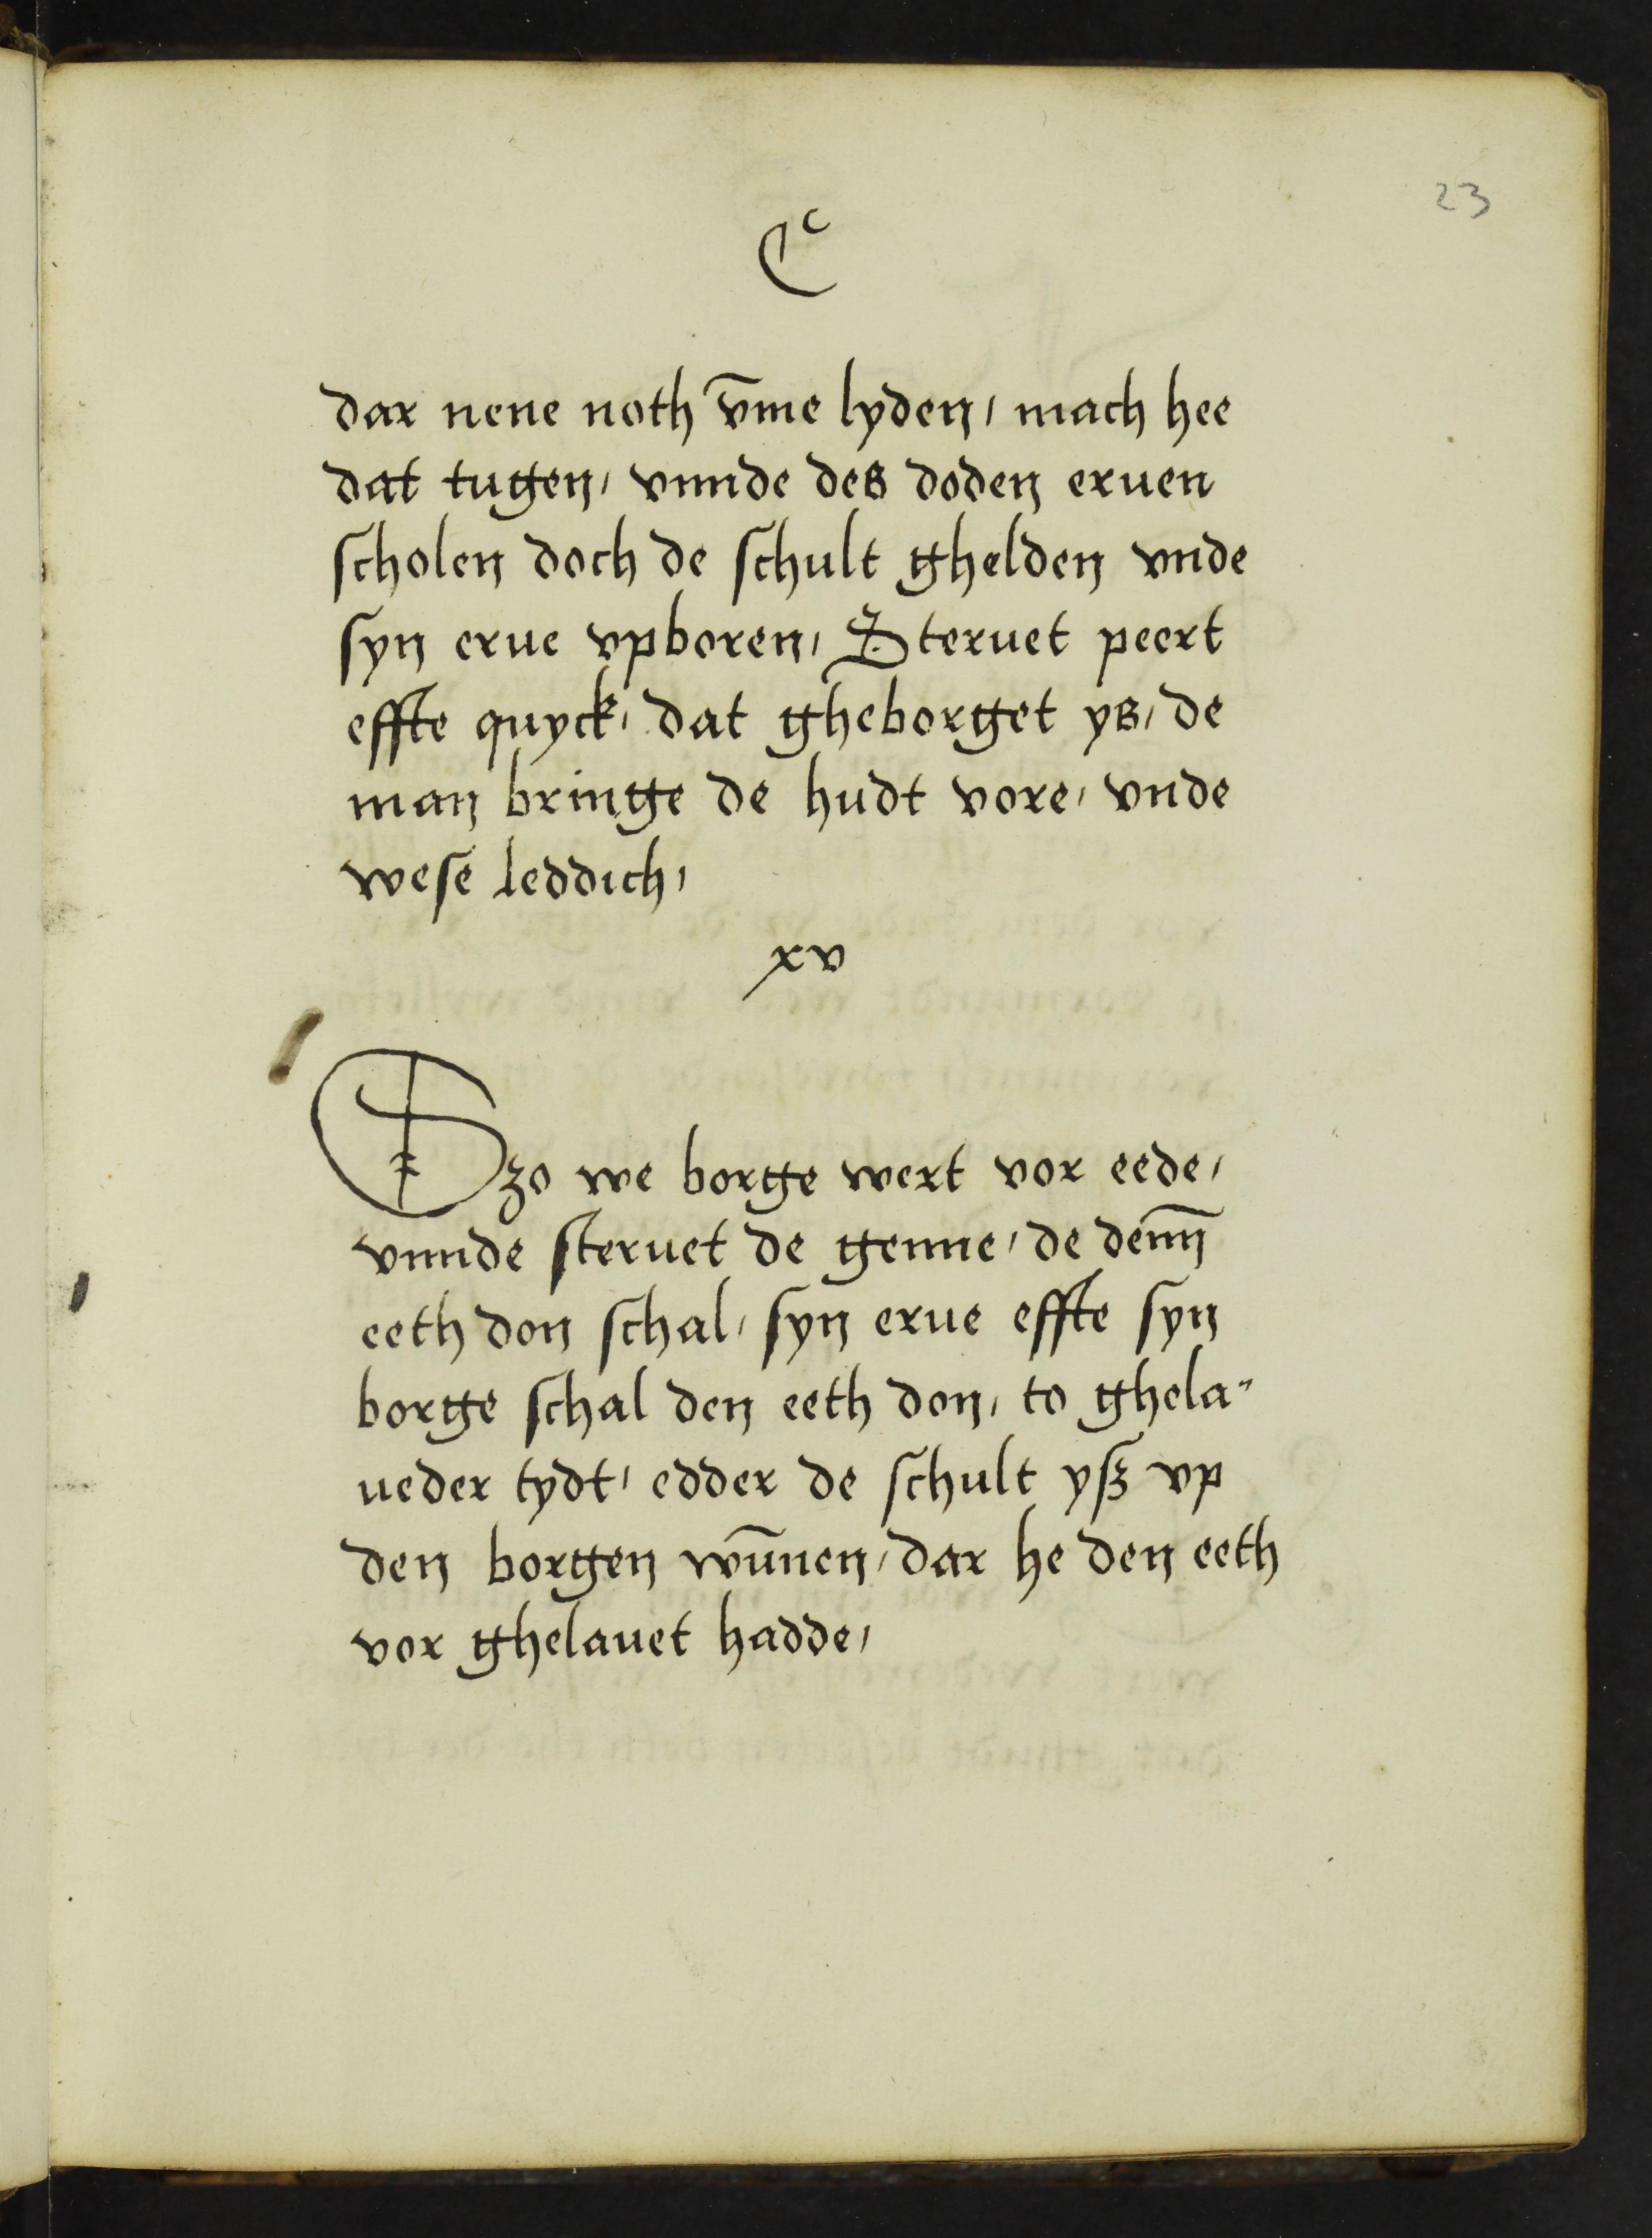 23
C
dar nene noth v̄me lyden, mach hee
dat tugen, vnnde des doden eruen
scholen doch de schult ghelden vnde
syn erue vpboren, Steruet peert
effte quyck, dat gheborget ys, de
man bringe de hudt vore, vnde
wese leddich,
xv
Szo we borge wert vor eede,
vnnde steruet de genne, de den̄n
eeth don schal, syn erue effte syn
borge schal den eeth don, to ghela"
ueder tydt, edder de schult ysz vp
den borgen wūnen, dar he den eeth
vor ghelauet hadde,